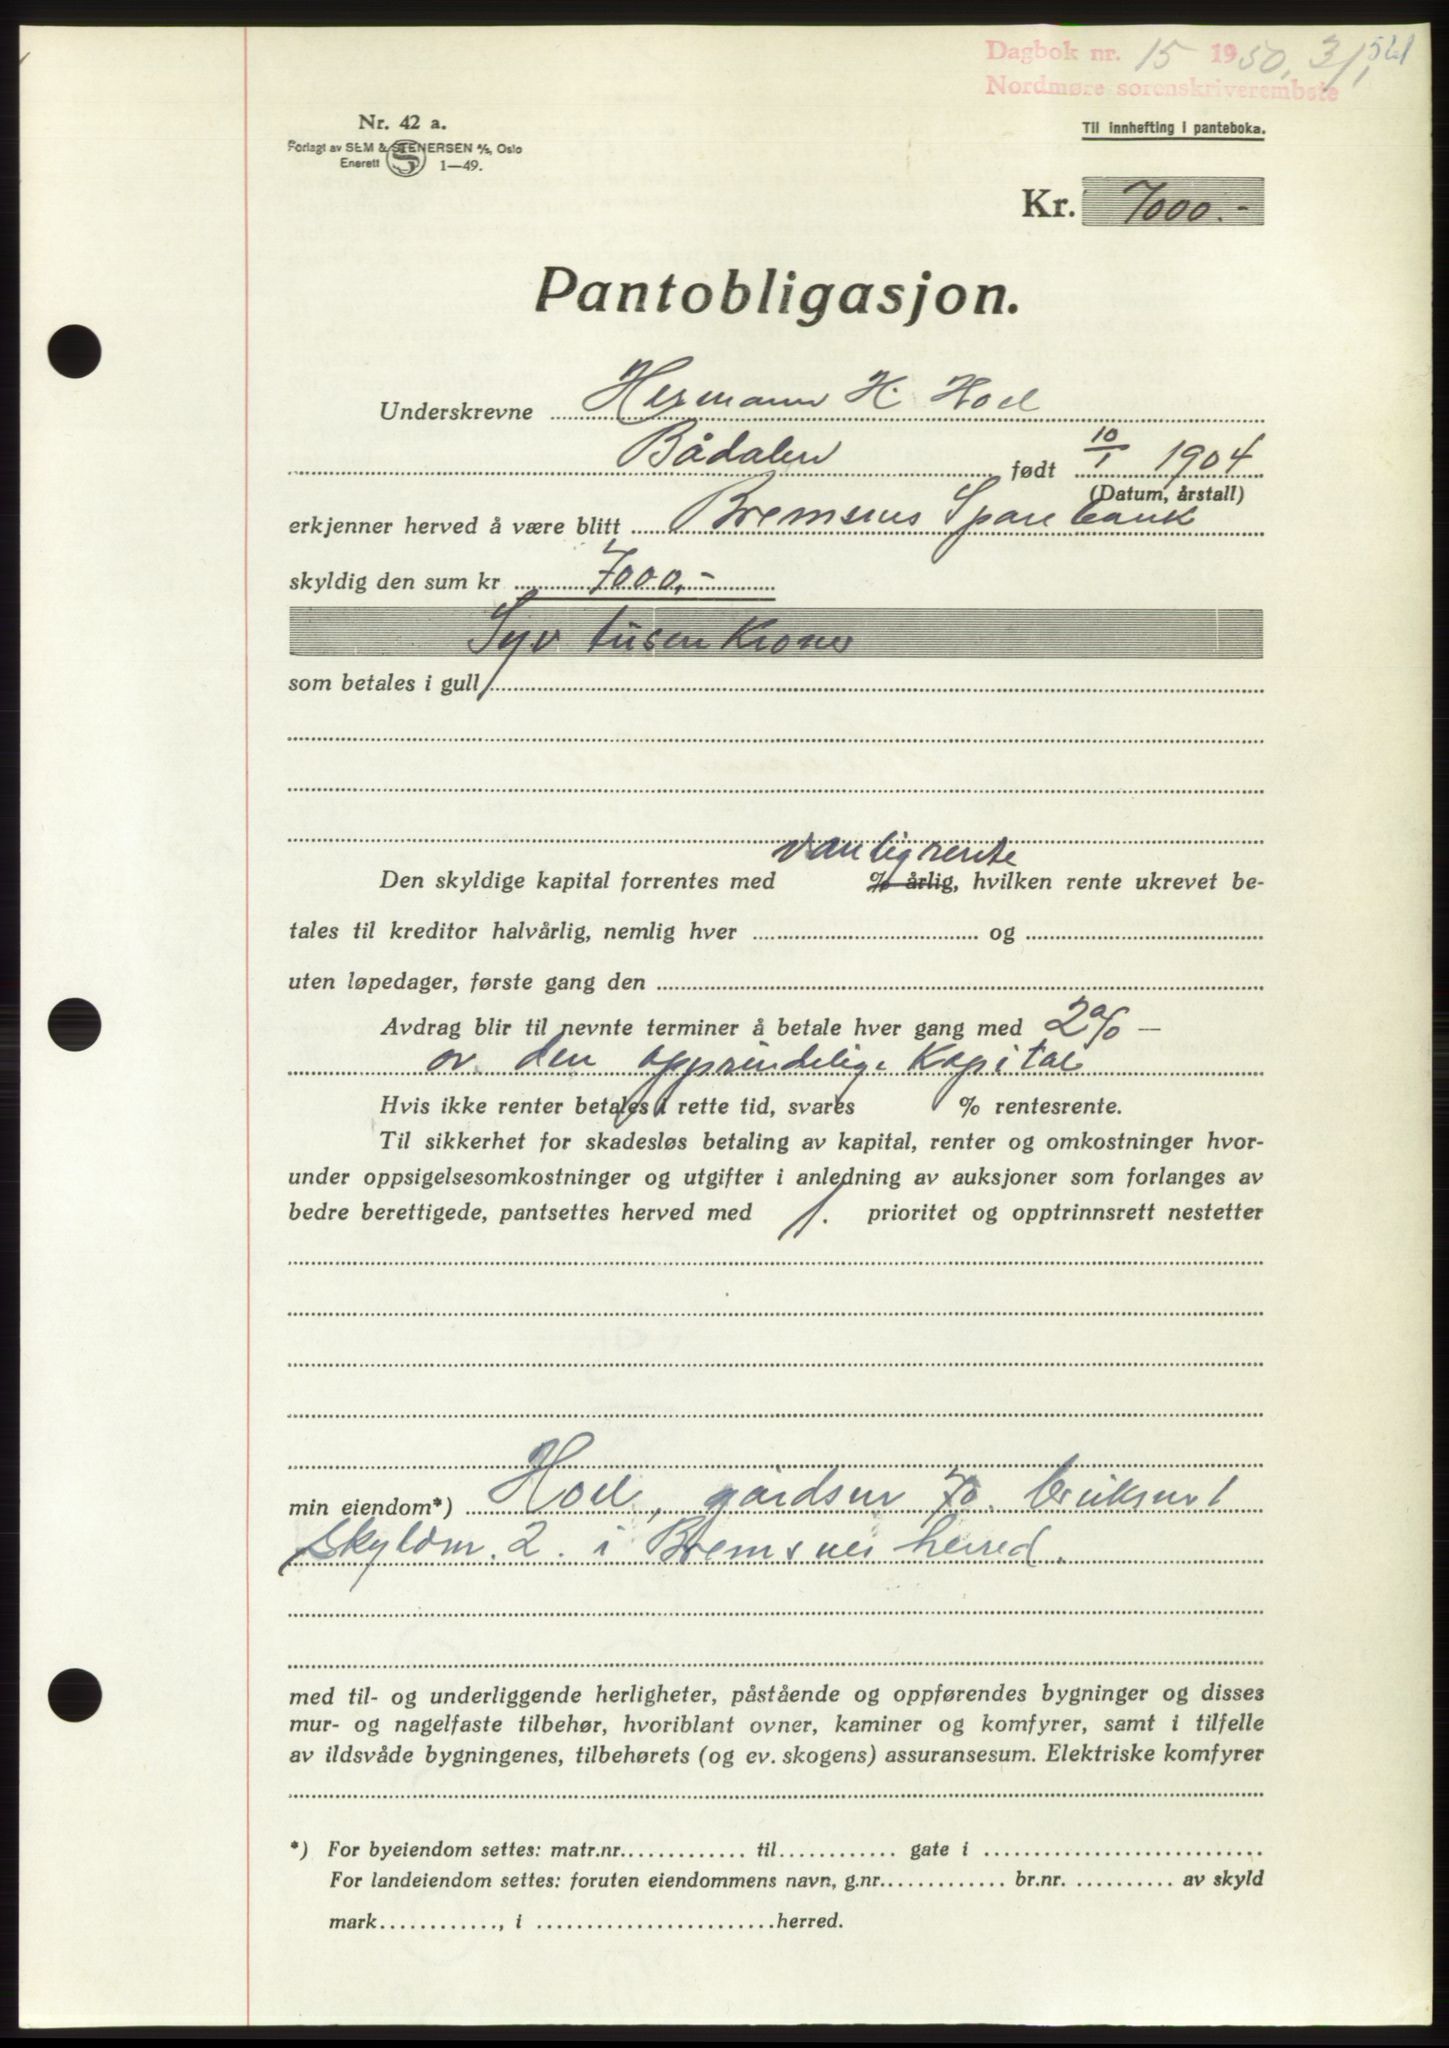 Dagbok nr. 15 1950. 3/1,
Nordmøre sorenskriverembete
521
Nr. 42 a.
Forlagt av SEM & STENERSEN A/S, Oslo
Enerett S 1—49.
Til innhefting i panteboka.
Kr. 7000.-
Pantobligasjon.
Underskrevne Hermann H. Hoel
Bådalen født 10/1 1904
(Datum, årstall)
erkjenner herved å være blitt Bremsnes Sparebank
skyldig den sum kr 7000,-
Syv tusen Kroner
som betales i gull
vanlig rente
Den skyldige kapital forrentes med % årlig, hvilken rente ukrevet be-
tales til kreditor halvårlig, nemlig hver og
uten løpedager, første gang den
Avdrag blir til nevnte terminer å betale hver gang med 2% —
av den opprindelige Kapital
Hvis ikke renter betales i rette tid, svares % rentesrente.
Til sikkerhet for skadesløs betaling av kapital, renter og omkostninger hvor-
under oppsigelsesomkostninger og utgifter i anledning av auksjoner som forlanges av
bedre berettigede, pantsettes herved med 1. prioritet og opptrinnsrett nestetter
min eiendom*) Hoel, gårdsnr 70. bruksnr 1
skyldm. 2. i Bremsnes herred.
med til- og underliggende herligheter, påstående og oppførendes bygninger og disses
mur- og nagelfaste tilbehør, hvoriblant ovner, kaminer og komfyrer, samt i tilfelle
av ildsvåde bygningenes, tilbehørets (og ev. skogens) assuransesum. Elektriske komfyrer
*) For byeiendom settes: matr.nr. til gate i
For landeiendom settes: foruten eiendommens navn, g.nr. br.nr. av skyld
mark , i herred.